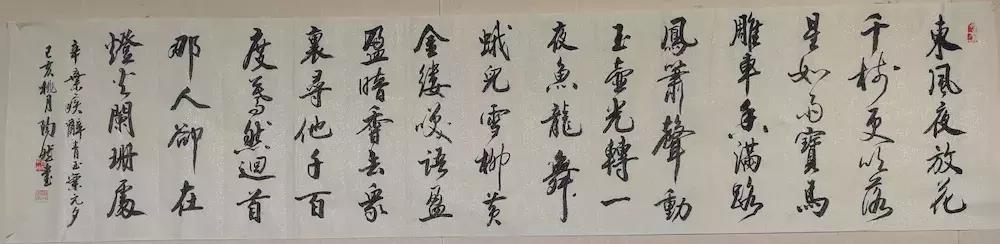 東風夜放花
千樹更吹落
星如雨寶馬
雕車香滿路
鳳簫聲動
玉壺光轉一
夜魚龍舞
蛾兒雪柳黄
金縷笑語盈
盈暗香去衆
裏尋他千百
度驀然迴首
那人卻在
燈火闌珊處
辛棄疾辭青玉案元夕
己亥桃月陶然書